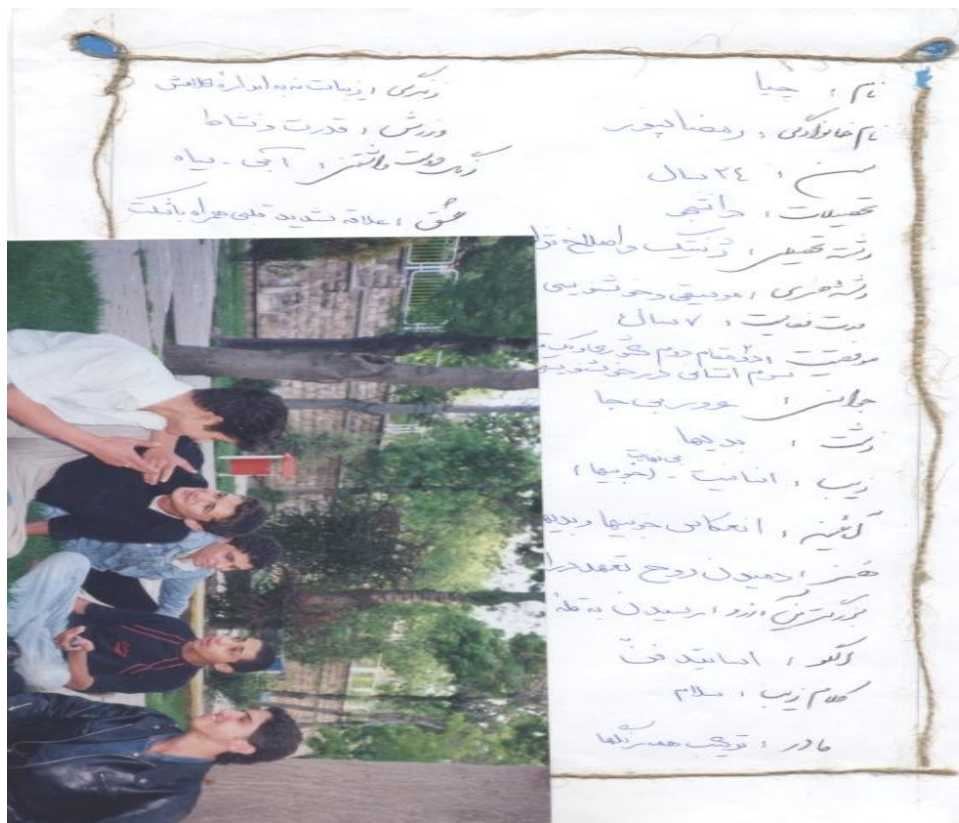 نام : چیا
نام خانوادگی : رمضانپور
سن : ٢٤ سال
تحصیلات : دانشجو
رشته تحصیلی : ژنتیک و اصلاح نژا
رشته هنری : موسیقی و خوشنویسی
مدت فعالیت : ٧ سال
موفقیت : مقام دوم کشوری
سوم استانی در خوشنویسی
جوانی : غرور بی جا
زشت : بدیها
زیبا : انسانیت - خوبیها
بی نهایت
آئینه : انعکاس خوبیها و بدیه
هنر : دمیدن روح تعهد در ا
بزرگترین آرزو : رسیدن به
الگو : اساتید فن
کلام زیبا : سلام
مادر : ترکیب همه گلها
زندگی : زیباست نه به اندازه کلامش
ورزش : قدرت و نشاط
رنگ دوست داشتنی : آبی - سیاه
عشق : علاقه شدید قلبی همراه با